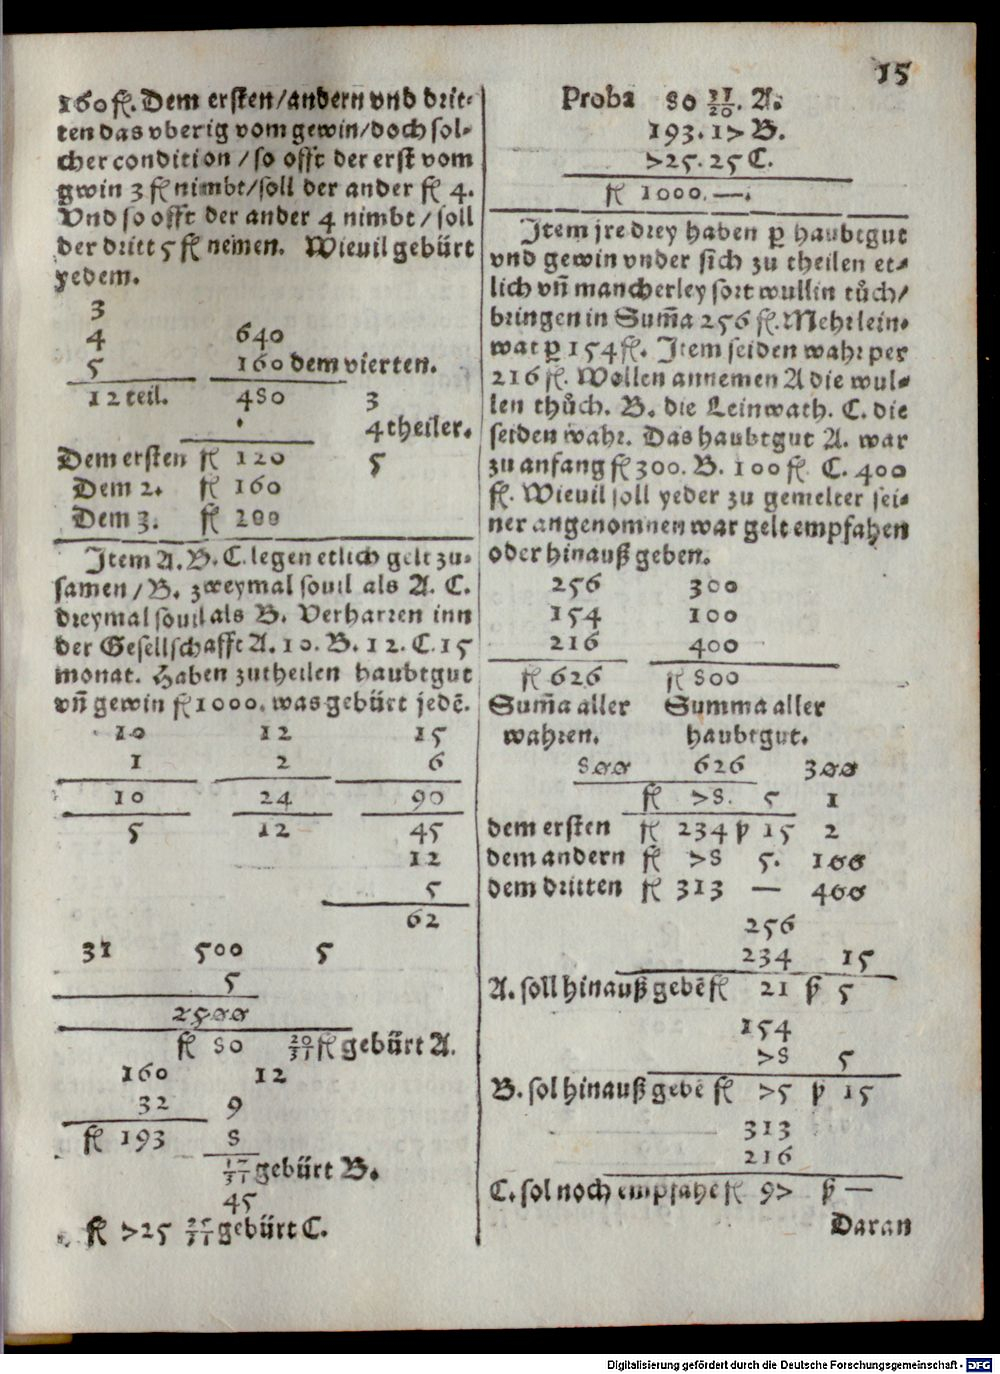 15
160 fl. Dem ersten/andern vnd drit-
ten das vberig vom gewin/doch sol-
cher condition/so offt der erst vom
gwin 3 fl nimbt/soll der ander fl 4.
Vnd so offt der ander 4 nimbt/soll
der dritt 5 fl nemen. Wieuil gebürt
yedem.
3
4 640
5 160 dem vierten.
12 teil. 480 3
4 theiler.
Dem ersten fl 120 5
Dem 2. fl 160
Dem 3. fl 200
Item A. B. C. legen etlich gelt zu-
samen/B. zweymal souil als A. C.
dreymal souil als B. Verharren inn
der Gesellschafft A. 10. B. 12. C. 15
monat. Haben zutheilen haubtgut
vñ gewin fl 1000. was gebürt jedē.
10 12 15
1 2 6
10 24 90
5 12 45
12
5
62
31 500 5
5
2500
fl 80 20/31 fl gebürt A.
160 12
32 9
fl 193 8
17/31 gebürt B.
45
fl 725 25/31 gebürt C.
Proba 80 A.
193. 17 B.
725. 25 C.
fl 1000. —.
Item jre drey haben ꝑ haubtgut
vnd gewin vnder sich zu theilen et-
lich vñ mancherley sort wullin tůch/
bringen in Sum̄a 256 fl. Mehr lein-
wat ꝑ 154 fl. Item seiden wahr per
216 fl. Wollen annemen A die wul-
len thůch. B. die Leinwath. C. die
seiden wahr. Das haubtgut A. war
zu anfang fl 300. B. 100 fl. C. 400
fl. Wieuil soll yeder zu gemelter sei-
ner angenomnen war gelt empfahen
oder hinauß geben.
256 300
154 100
216 400
fl 626 fl 800
Sum̄a aller Summa aller
wahren. haubtgut.
800 626 300
fl 78. 5 1
dem ersten fl 234 ꝑ 15 2
dem andern fl 78 5. 100
dem dritten fl 313 — 400
256
234 15
A. soll hinauß gebē fl 21 ꝑ 5
154
78 5
B. sol hinauß gebē fl 75 ꝑ 15
313
216
C. sol noch empfahē fl 97 ꝑ —
Daran
Digitalisierung gefördert durch die Deutsche Forschungsgemeinschaft - DFG